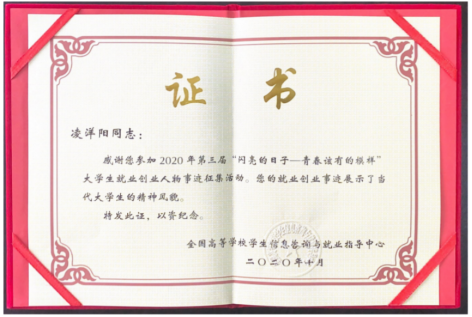 证书
凌洋阳同志：
感谢您参加2020年第三届“闪亮的日子—青春该有的模样”
大学生就业创业人物事迹征集活动。您的就业创业事迹展示了当
代大学生的精神风貌。
特发此证，以资纪念。
全国高等学校学生信息咨询与就业指导中心
二〇二〇年十月